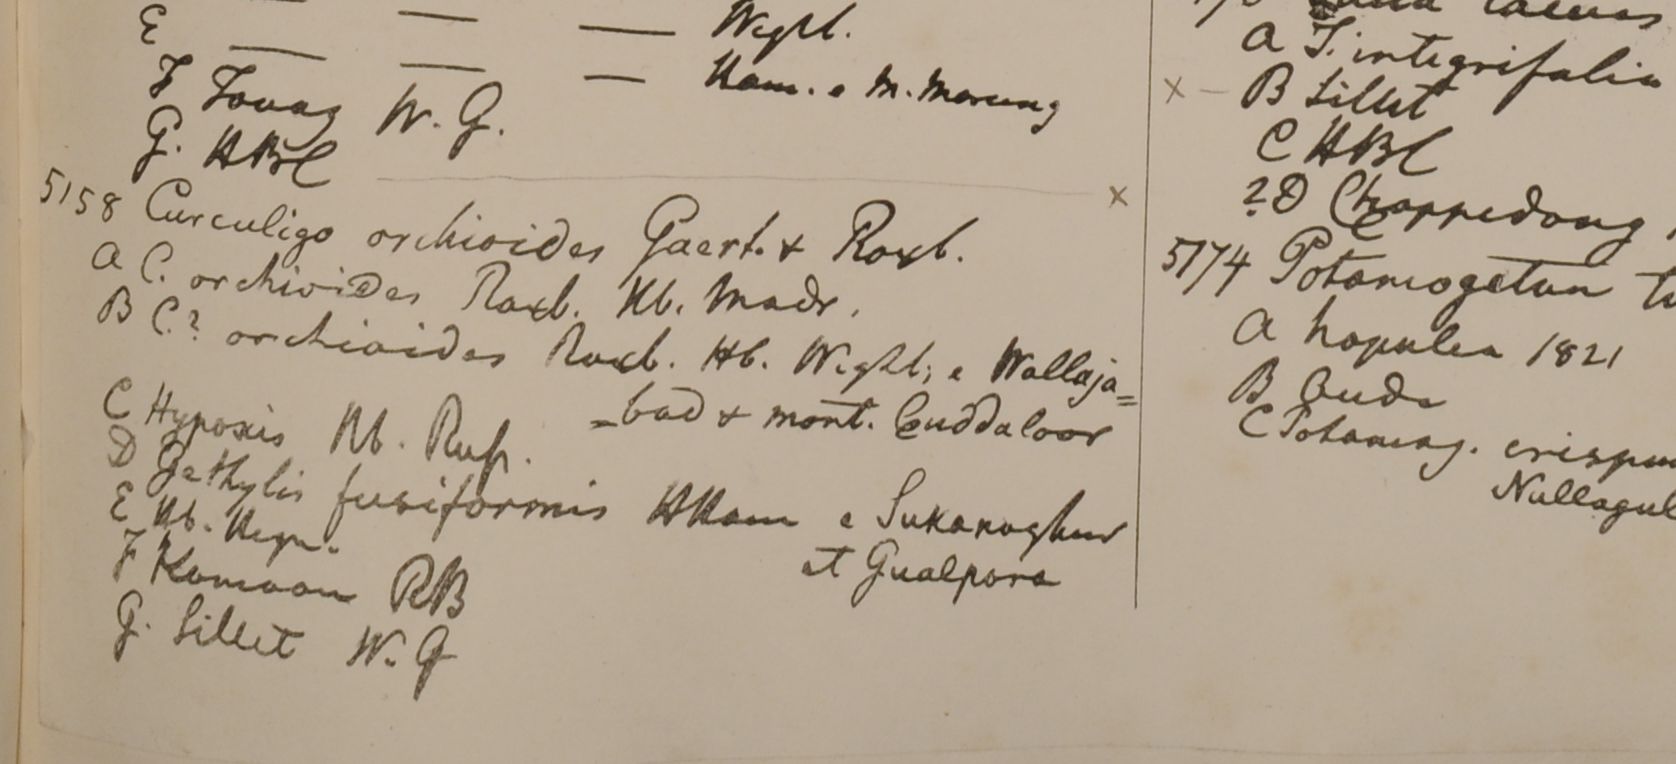 E — — — Wight.
F — — — Ham. e M. Morung
F Tavoy W. G.
G. HBC
5158 Curculigo orchioides Gaert. & Roxb.
A C. orchioides Roxb. Hb. Madr.
B C.? orchioides Roxb. Hb. Wight; e Wallaja=
=bad & mont. Cuddaloor
C Hypoxis Hb. Rup.
D Gethylis fusiformis HHam e Sukanaghur
et Gualpora
E Hb. Heyn.
F Kamaon RB
G. Sillet W. G
A T. integrifolia
× — B Sillet
C HBC
?D Chappedong
5174 Potamogeton tu
A Napulea 1821
B Oude
C Potamog. crispum